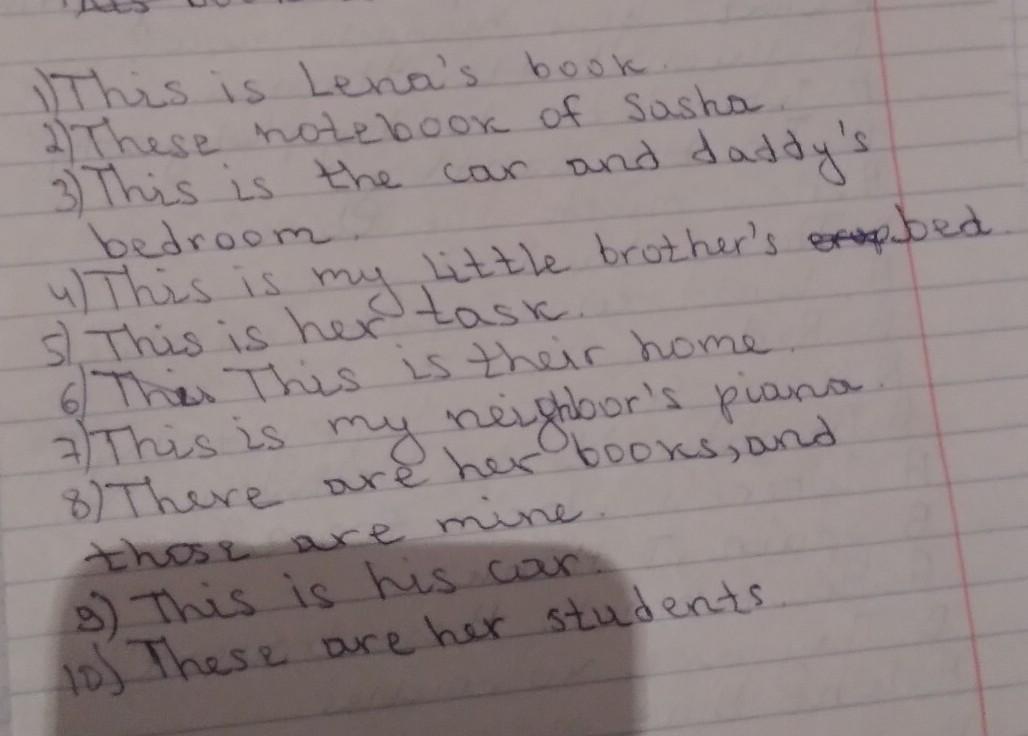 1) This is Lena's book.
2) These notebook of Sasha.
3) This is the car and daddy's
bedroom.
4) This is my little brother's bed.
5) This is her task.
6) This is their home.
7) This is my neighbor's piana.
8) There are her books, and
those are mine.
9) This is his car.
10) These are her students.